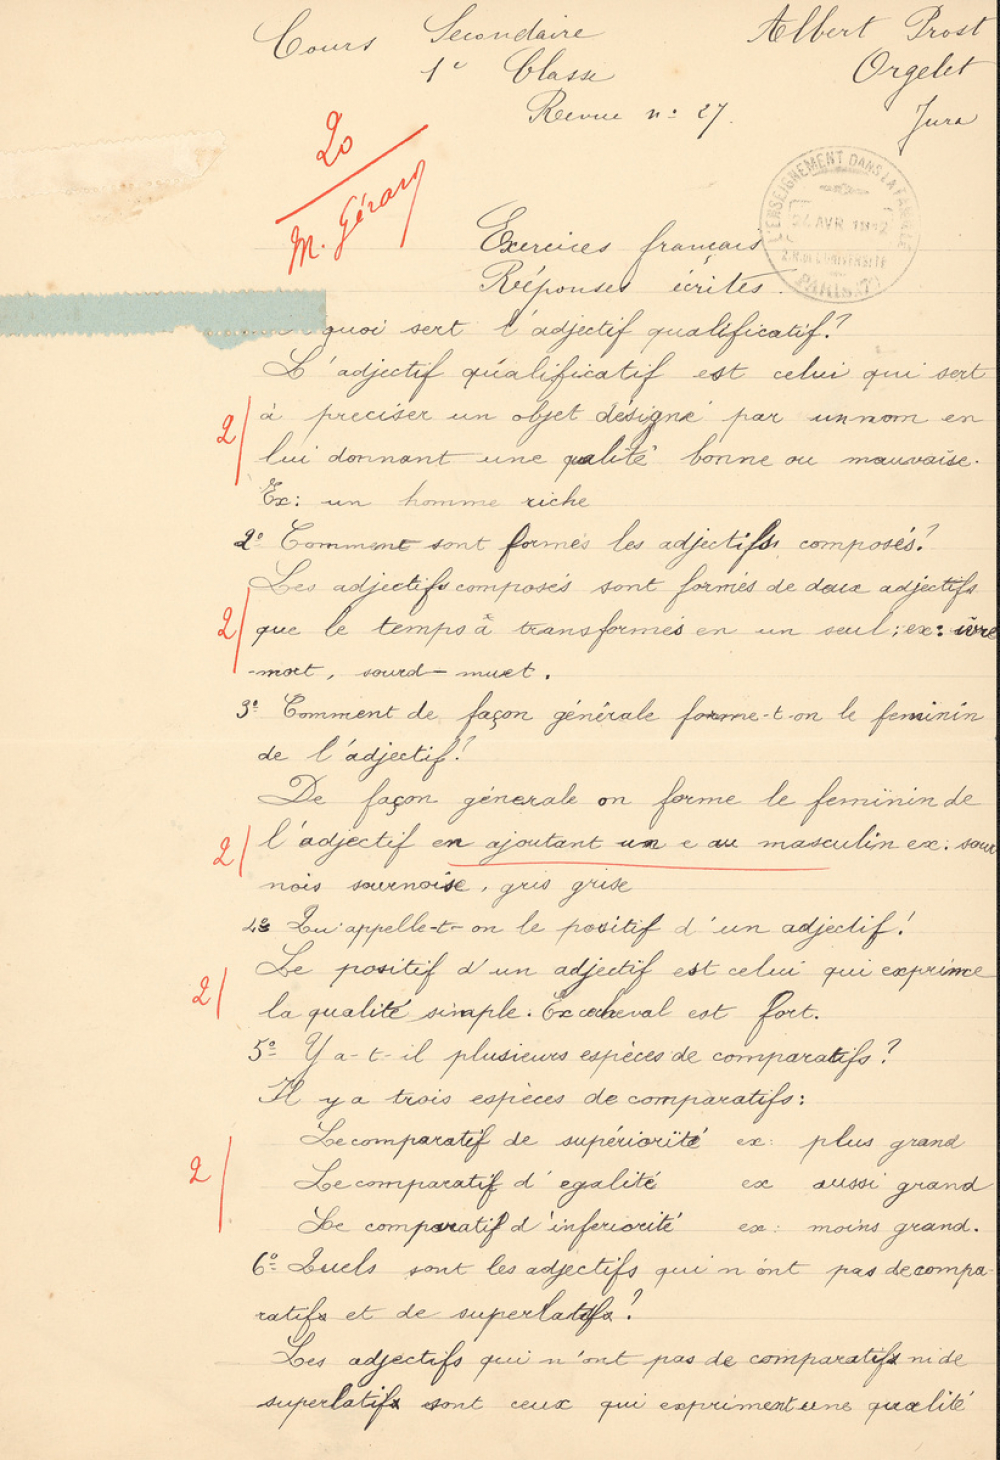 Cours Secondaire Albert Prost
1e Classe Orgelet
Revue n: 27. Jura
20
M. Gérard
L'ENSEIGNEMENT DANS LA FAMILLE
24 AVR 1912
PARIS
Exercices français
Réponses écrites.
quoi sert l'adjectif qualificatif?
L'adjectif qualificatif est celui qui sert
2/ à preciser un objet désigné par un nom en
lui donnant une qualité bonne ou mauvaise.
Ex: un homme riche
2º Comment sont formés les adjectifs composés?
Les adjectifs composés sont formés de deux adjectifs
2/ que le temps à transformés en un seul; ex: ivre
-mort, sourd-muet.
3º Comment de façon générale forme-t-on le feminin
de l'adjectif?
De façon génerale on forme le feminin de
2/ l'adjectif en ajoutant un e au masculin ex: sour
nois sournoise, gris grise
4º Qu'appelle-t-on le positif d'un adjectif!
Le positif d'un adjectif est celui qui exprime
2/ la qualité simple. Ex cheval est fort.
5º Y a-t-il plusieurs espèces de comparatifs?
Il y a trois espèces de comparatifs:
Le comparatif de supériorité ex: plus grand
2/ Le comparatif d'egalité ex aussi grand
Le comparatif d'inferiorité ex: moins grand.
6º Quels sont les adjectifs qui n'ont pas de compa-
ratifs et de superlatifs?
Les adjectifs qui n'ont pas de comparatifs ni de
superlatifs sont ceux qui expriment une qualité